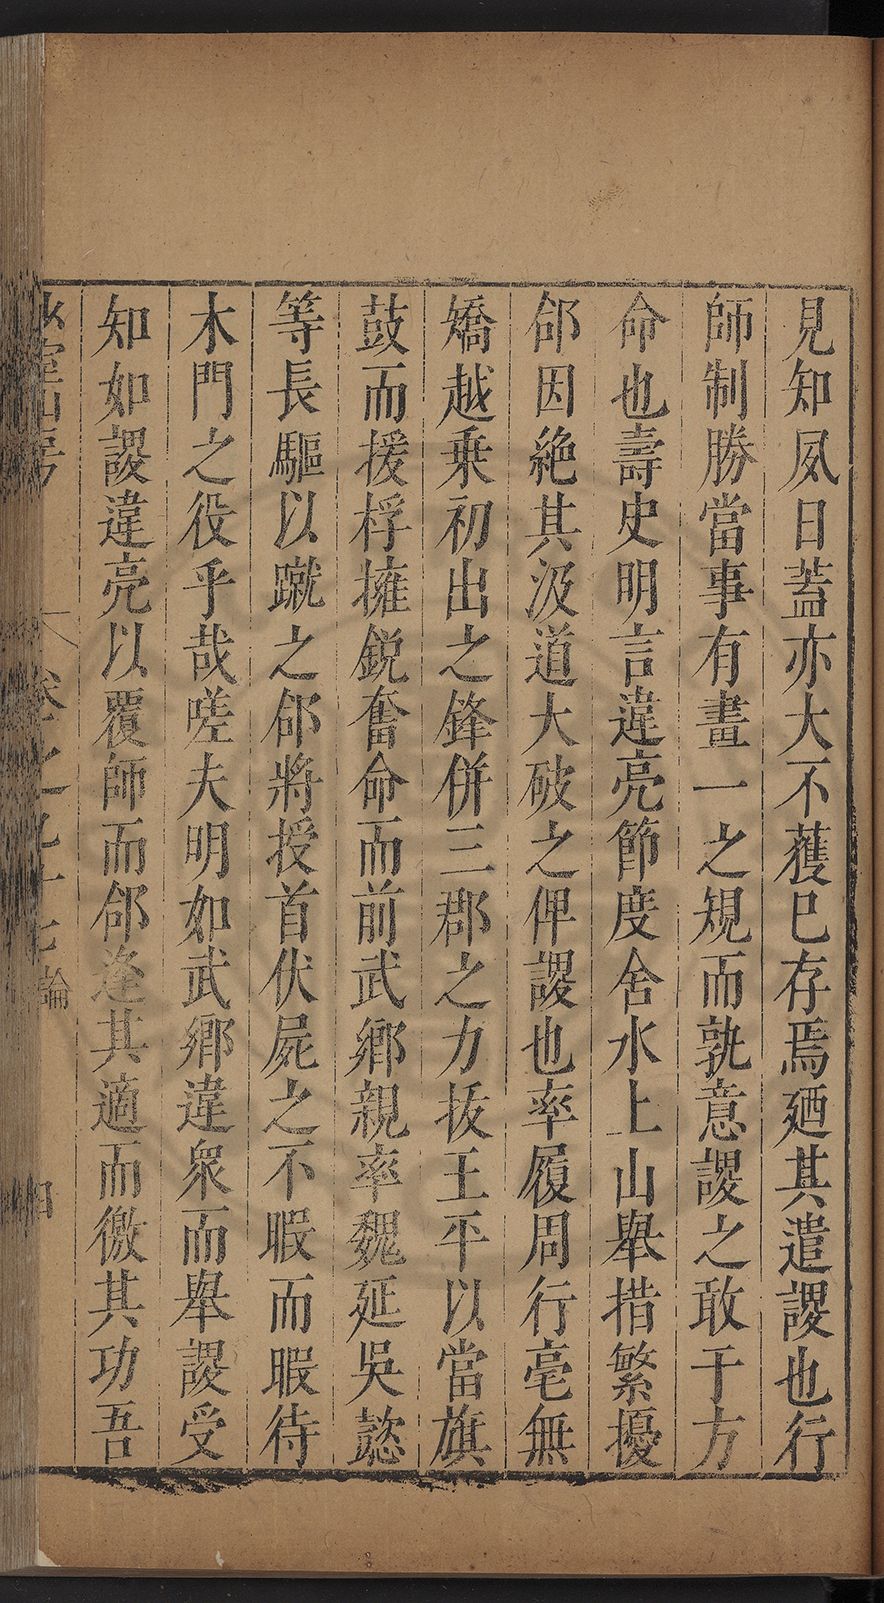 見知夙日蓋亦大不獲巳存焉廼其遣謖也行
師制勝當事有畫一之規而孰意謖之敢于方
命也壽史明言違亮節度舍水上山舉措繁擾
郃因絶其汲道大破之俾謖也率履周行亳無
嬌越乗初出之鋒併三郡之力㧞王平以當旗
鼓而援桴擁鋭奮命而前武鄉親率魏延吳懿
等長驅以蹴之郃將授首伏屍之不暇而暇待
木門之役乎哉嗟夫明如武鄉違衆而舉謖受
知如謖違亮以覆師而郃逢其適而徼其功吾
山房
卷之九十七
論
四